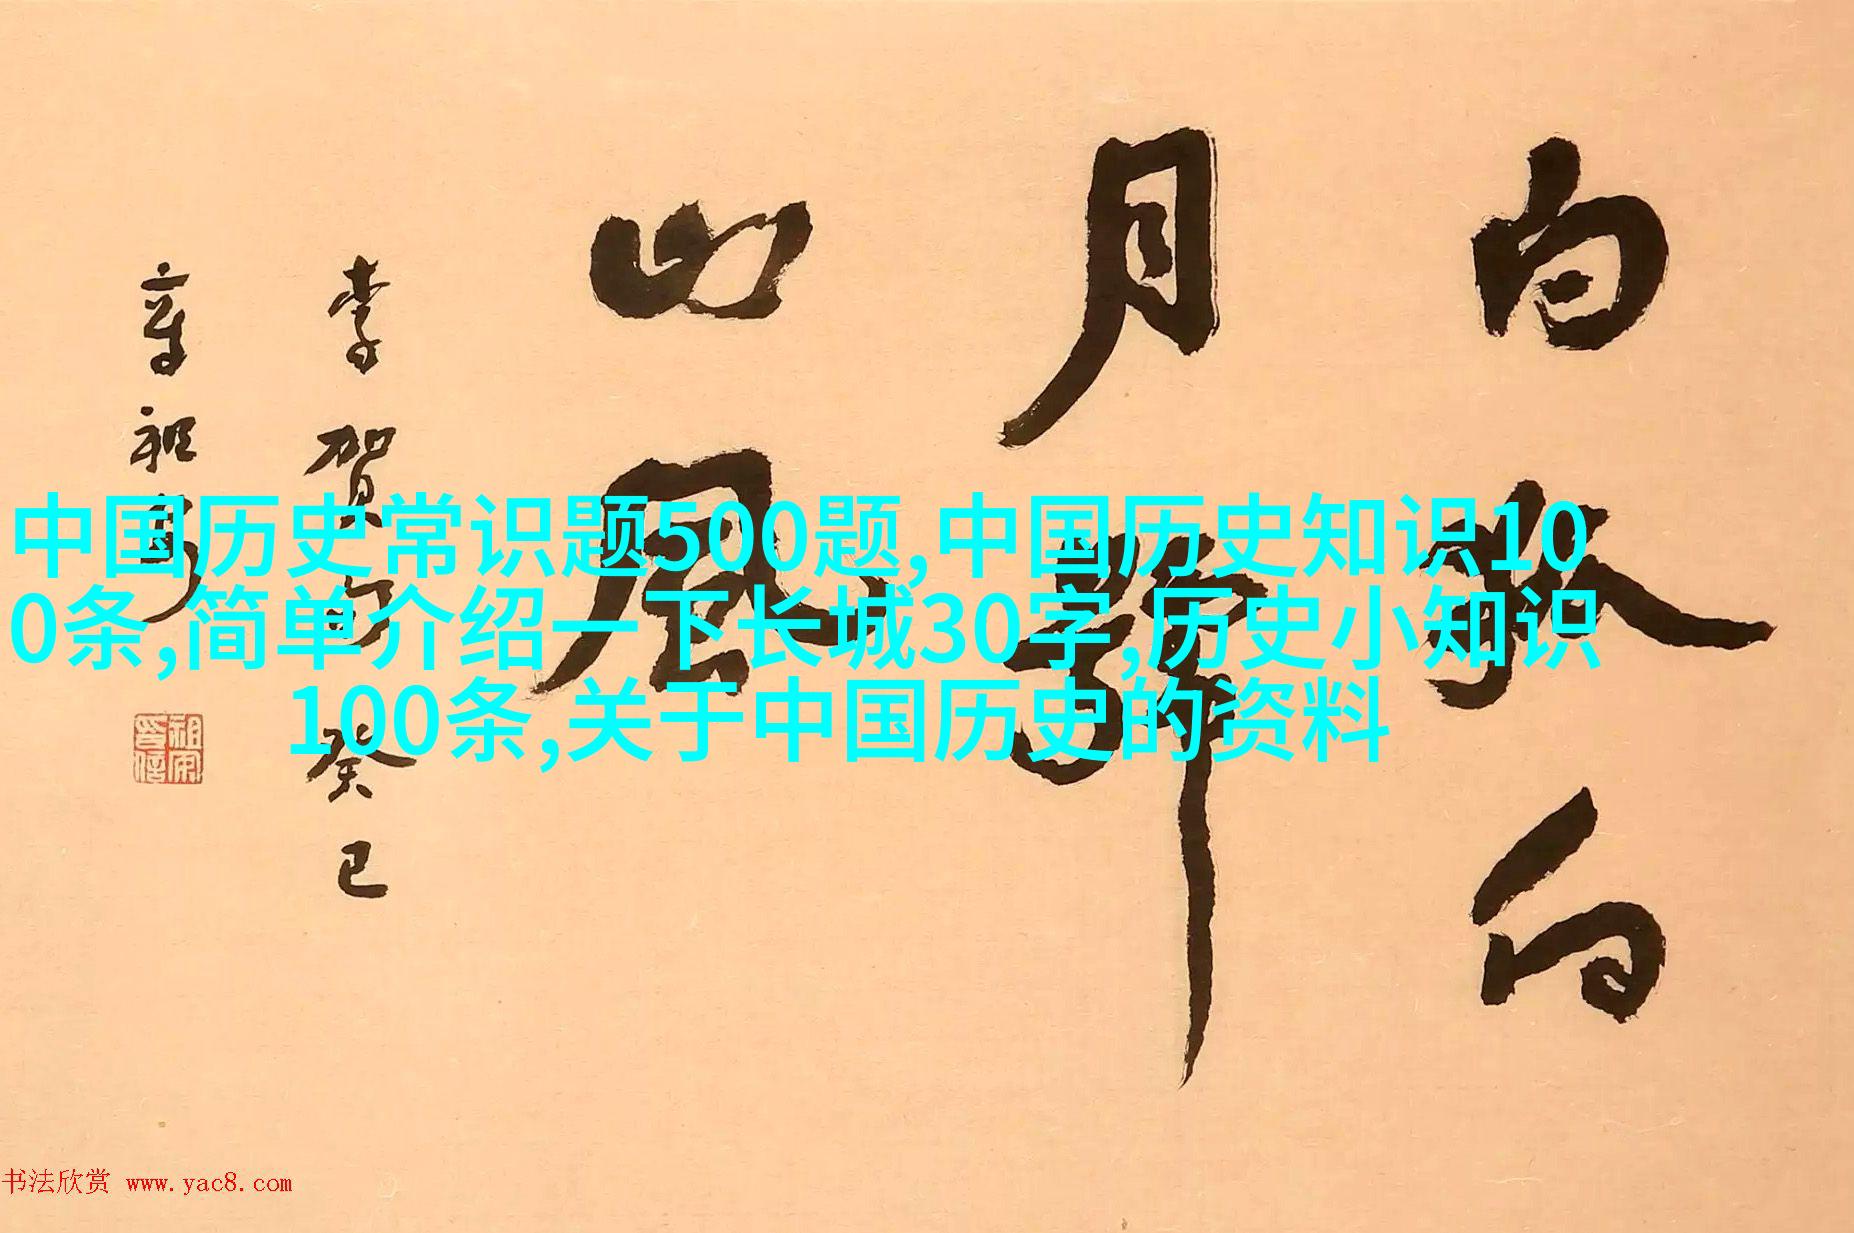 月
山風
李賀句 癸巳
章祖安
中国历史常识题500题,中国历史知识10
0条,简单介绍一下长城30字,历史小知识
100条,关于中国历史的资料
书法欣赏 www.yac8.com